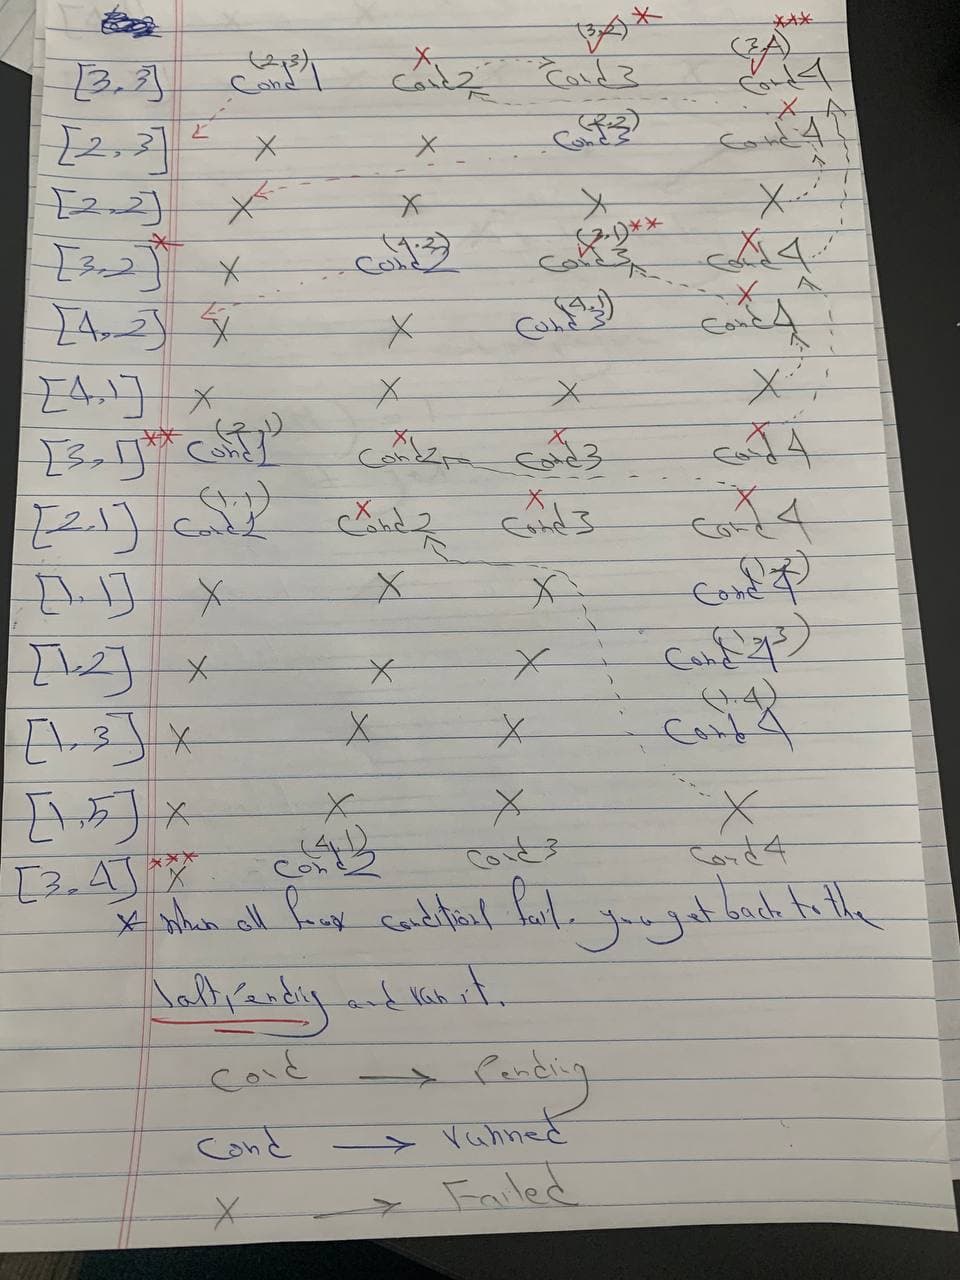 (3,2) * ***
(2,3) X (3,4)
[3,3] Cond 1 Cond 2 Cond 3 Cond 4
(2,2) X
[2,3] X X Cond 3 Cond 4
[2,2] X X X X
* (4,2) (3,1) ** X
[3,2] X Cond 2 Cond 3 Cond 4
(4,1) X
[4,2] X X Cond 3 Cond 4
[4,1] X X X X
** (2,1) X X X
[3,1] Cond 1 Cond 2 Cond 3 Cond 4
(1,1) X X X
[2,1] Cond 1 Cond 2 Cond 3 Cond 4
(1,2)
[1,1] X X X Cond 4
(1,3)
[1,2] X X X Cond 4
(1,4)
[1,3] X X X Cond 4
[1,5] X X X X
*** (4,1)
[3,4] X Cond 2 Cond 3 Cond 4
* when all four conditions fail. you get back to the
last Pending and run it.
Cond → Pending
Cond → runned
X → Failed